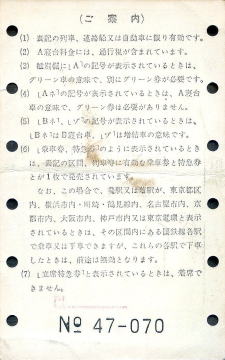 （ご 案 内）
(1) 表記の列車、連絡船又は自動車に限り有効です。
(2) A寝台料金には、通行税が含まれています。
(3) にAの記号が表示されているときは、
グリーン車の意味で、別にグリーン券が必要です。
(4) 「Aネ」の記号が表示されているときは、A寝台
車の意味で、グリーン券は必要がありません。
(5) 「Bネ」、「ゾ」の記号が表示されているときは、
「BネはB寝台車、「ゾ」は増結車の意味です。
(6) 「乗車券、特急券」のように表示されているとき
は、表記の区間、列車等に有効な乗車券と特急券
とが1枚で発売されています。
なお、この場合で、発駅又は着駅が、東京都区
内、横浜市内・川崎・鶴見線内、名古屋市内、京
都市内、大阪市内、神戸市内又は東京電環と表示
されているときは、その区間内にある国鉄線各駅
で乗車又は下車できますが、これらの各駅で下車
したときは、前途は無効となります。
(7) 「立席特急券」と表示されているときは、着席で
きません。
№ 47-070